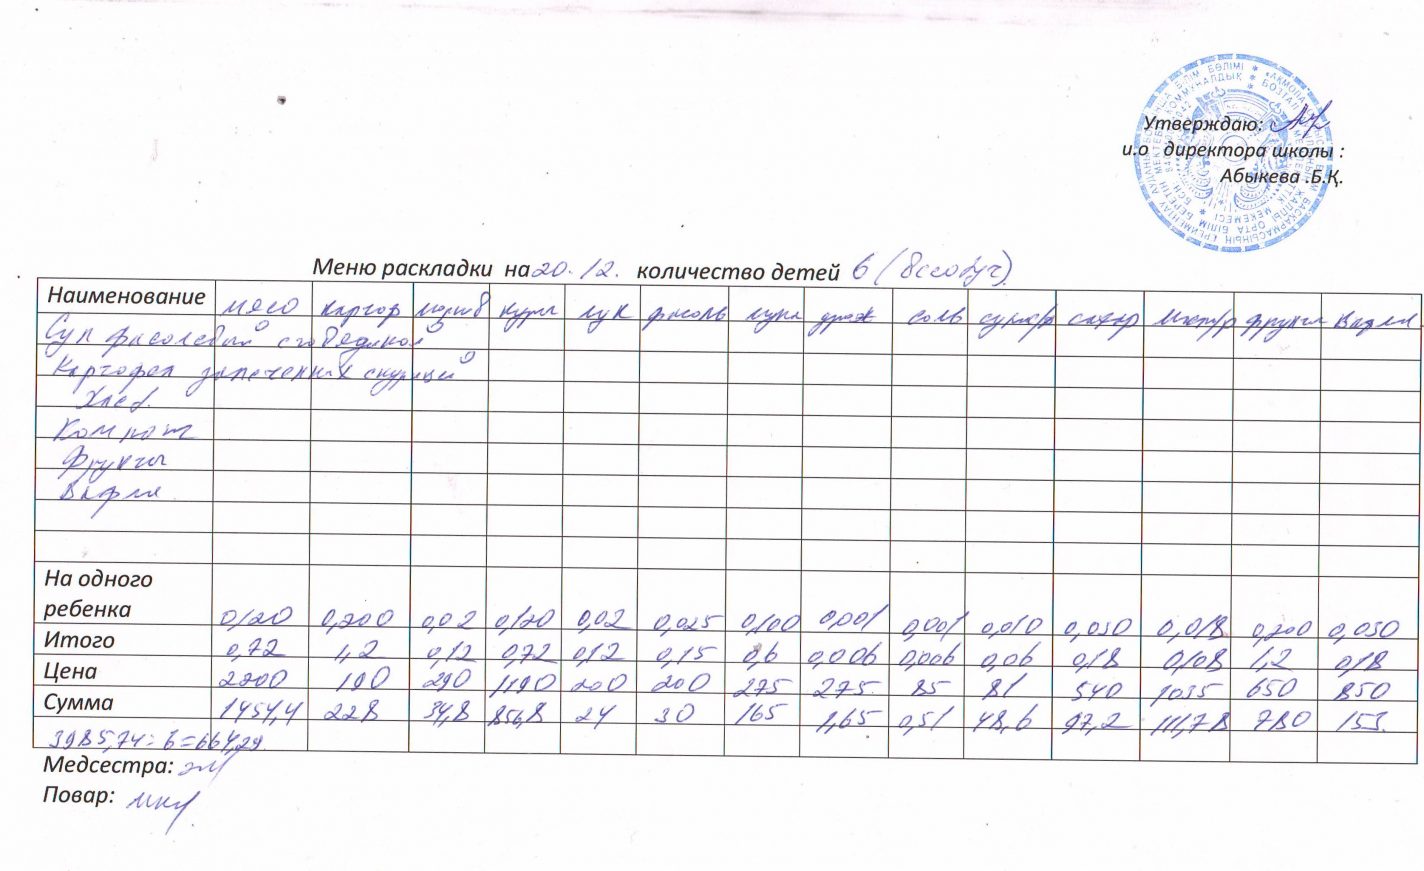 Утверждаю:
и.о директора школы :
Абыкева .Б.Қ.
Меню раскладки на 20.12. количество детей 6 (Всеобуч)
Наименование мясо картоф морковь куры лук фасоль мука дрож соль сухх/р сахар фрукты Вафли
Суп фасолевый с говядиной
Картофел запеченных с курицей
Хлеб
Компот
Фрукты
Вафли
На одного
ребенка 0,120 0,200 0,02 0,120 0,02 0,025 0,100 0,001 0,001 0,010 0,030 0,018 0,200 0,030
Итого 0,72 1,2 0,12 0,72 0,12 0,15 0,6 0,006 0,006 0,06 0,18 0,108 1,2 0,18
Цена 190 290 1190 200 200 275 275 85 81 540 1035 650 850
Сумма 1454,4 228 34,8 856,8 24 30 165 1,65 0,51 48,6 97,2 111,78 780 153
3985,74 : 6 = 664,29
Медсестра:
Повар: